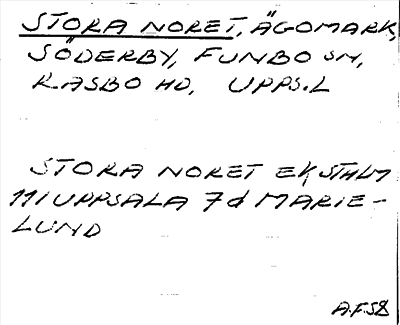 STORA NORET, ÄGOMARK,
SÖDERBY, FUNBO SN,
RASBO HD, UPPS.L
STORA NORET EK, STHLM
11I UPPSALA 7d MARIE-
LUND
A.F.58